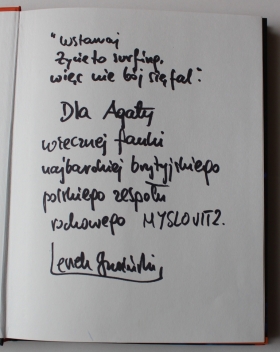 "Wstawaj
Życie to surfing,
więc nie bój się fal".
Dla Agaty
wiecznej fanki
najbardziej brytyjskiego
polskiego zespołu
rockowego MYSLOVITZ.